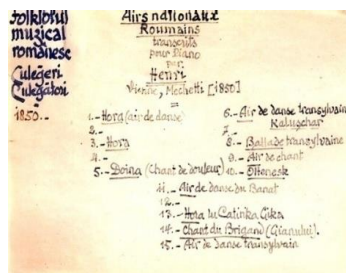 folklorul
muzical
românesc
Culegeri
Culegători
1850.-
Airs nationaux
Roumains
transcrits
pour Piano
par
Henri
Vienne, Mechetti [1850]
1.- Hora (air de danse)
2.-
3.- Hora
4.-
5.- Doina (Chant de douleur)
6.- Air de danse transylvain
Kaluschar
7.-
8.- Ballade transylvaine
9.- Air de chant
10.- Otienesk
11.- Air de danse du Banat
12.-
13.- Hora lu Catinka Gika
14.- Chant du Brigand (Gianului).
15.- Air de danse transylvain